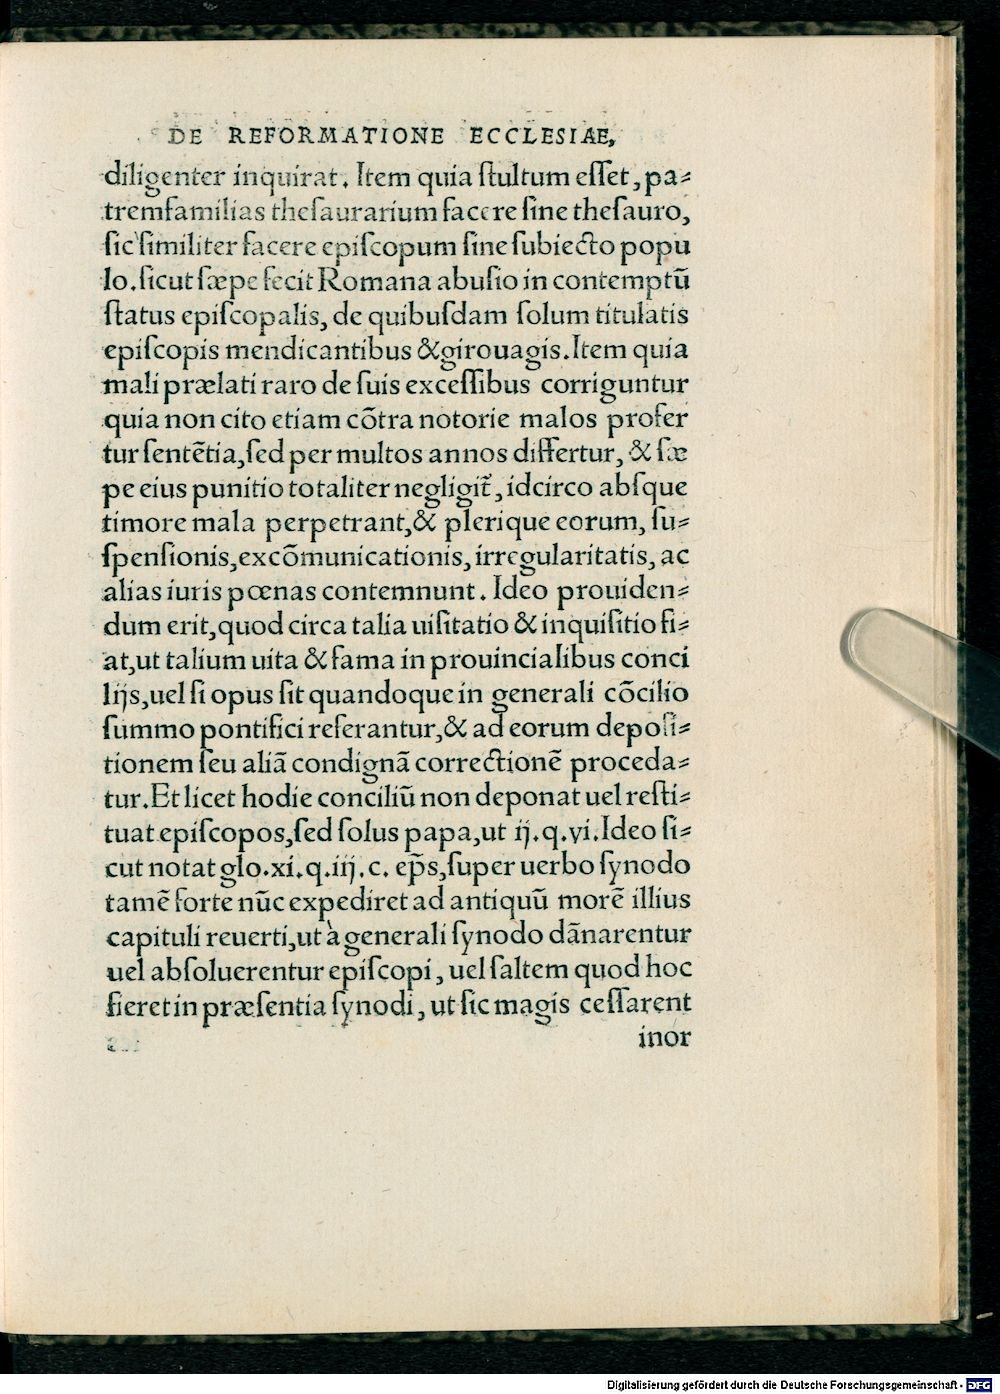 DE REFORMATIONE ECCLESIAE,
diligenter inquirat. Item quia ſtultum eſſet, pa⸗
tremfamilias theſaurarium facere ſine theſauro,
ſic ſimiliter facere epiſcopum ſine ſubiecto popu
lo. ſicut ſæpe fecit Romana abuſio in contemptũ
ſtatus epiſcopalis, de quibuſdam ſolum titulatis
epiſcopis mendicantibus & girouagis. Item quia
mali prælati raro de ſuis exceſſibus corriguntur
quia non cito etiam cõtra notorie malos profer
tur ſentẽtia, ſed per multos annos differtur, & ſæ
pe eius punitio totaliter negligit̃, idcirco abſque
timore mala perpetrant, & plerique eorum, ſu⸗
ſpenſionis, excõmunicationis, irregularitatis, ac
alias iuris pœnas contemnunt. Ideo prouiden⸗
dum erit, quod circa talia uiſitatio & inquiſitio fi⸗
at, ut talium uita & fama in prouincialibus conci
lijs, uel ſi opus ſit quandoque in generali cõcilio
ſummo pontifici referantur, & ad eorum depoſi⸗
tionem ſeu aliã condignã correctionẽ proceda⸗
tur. Et licet hodie conciliũ non deponat uel reſti⸗
tuat epiſcopos, ſed ſolus papa, ut ij. q. vi. Ideo ſi⸗
cut notat glo. xi. q. iij. c. ep̃s, ſuper uerbo ſynodo
tamẽ forte nũc expediret ad antiquũ morẽ illius
capituli reuerti, ut à generali ſynodo dãnarentur
uel abſoluerentur epiſcopi, uel ſaltem quod hoc
fieret in præſentia ſynodi, ut ſic magis ceſſarent
inor
Digitalisierung gefördert durch die Deutsche Forschungsgemeinschaft - DFG